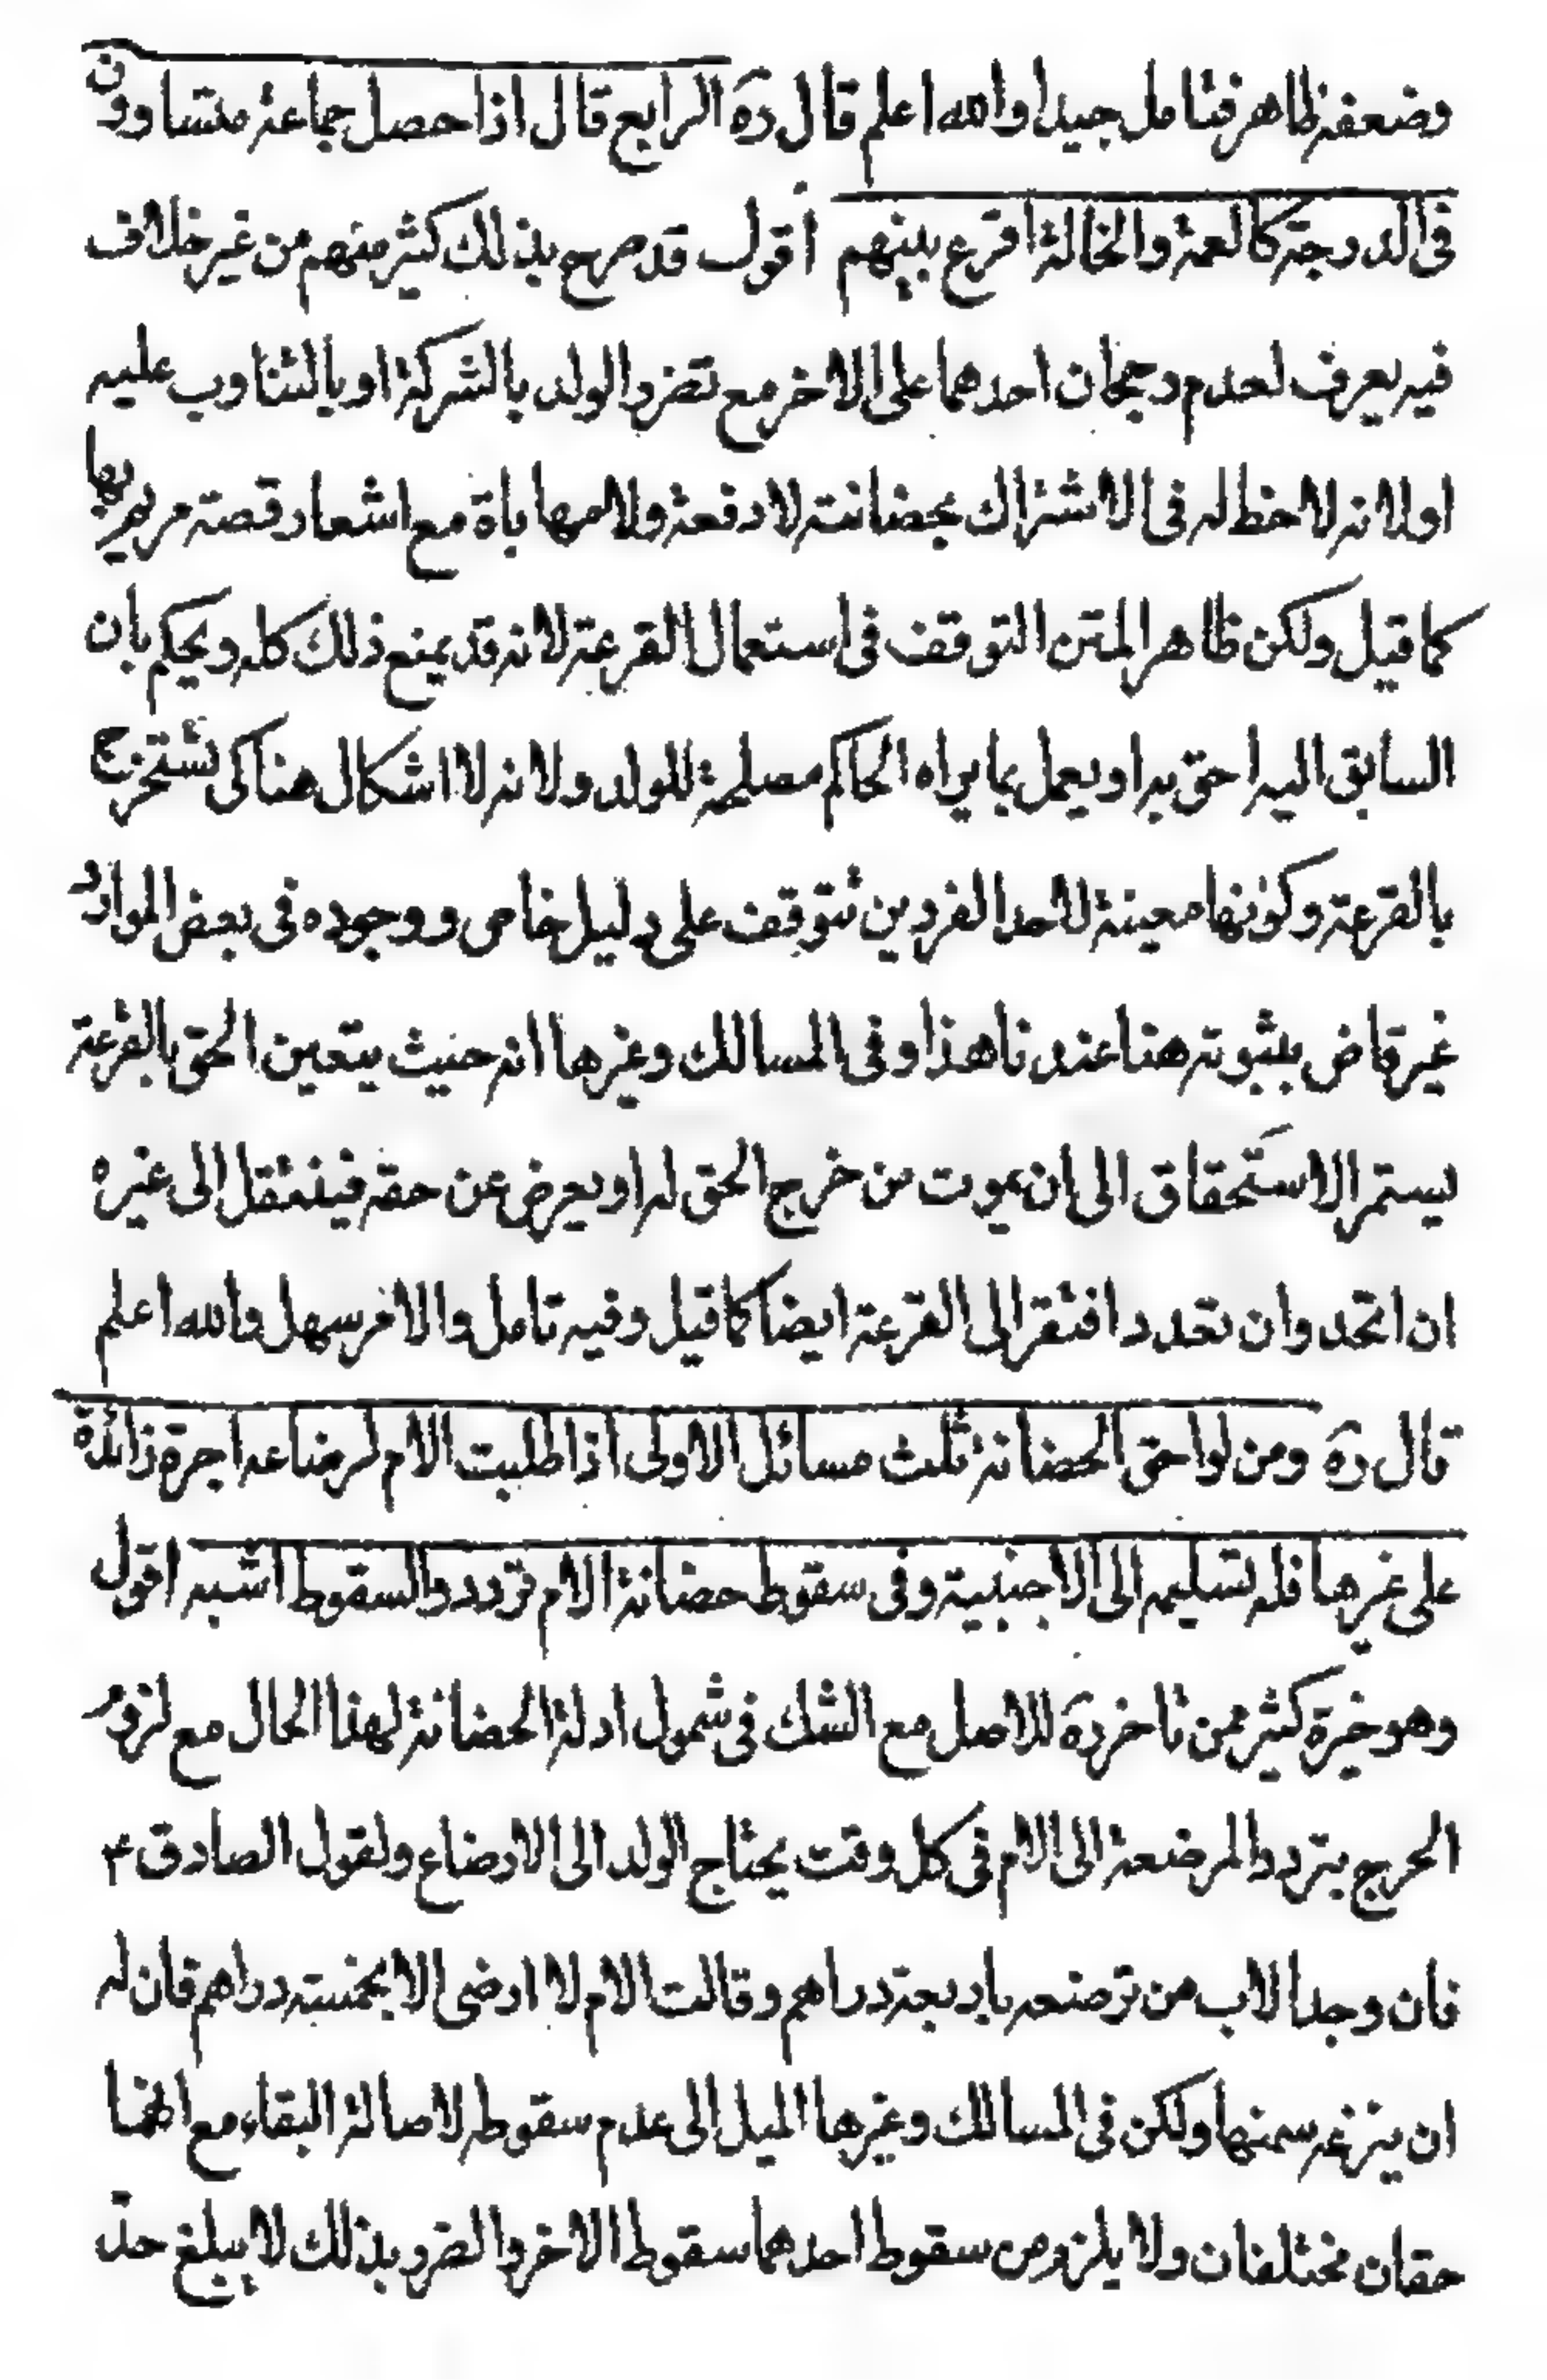 وضعفه ظاهر فتامل جيدا والله اعلم قال ره الرابع قال اذا حصل جماعة متساوون
فى الدرجة كالعمة والخالة اقرع بينهم اقول قد صرح بذلك كثير منهم من غير خلاف
فيه يعرف لعدم رجحان احدهما على الاخر مع تضرر الولد بالشركة او بالتناوب عليه
اولا نه لا حظ له فى الاشتراك بحضانته لا دفعة ولا مهاباة مع اشعار قصة مريم بها
كما قيل ولكن ظاهر المتن التوقف فى استعمال القرعة لانه قد يمنع ذلك كله ويحكم بان
السابق اليه احق به او يعمل بما يراه الحاكم مصلحة للولد ولانه لا اشكال هنا كى تستخرج
بالقرعة وكونها معينة لاحد الفردين تتوقف على دليل خاص ووجوده فى بعض الموارد
غير قاض بثبوته هنا عندنا هذا وفى المسالك وغيرها انه حيث يتعين الحق بالقرعة
يستمر الاستحقاق الى ان يموت من خرج الحق له او يعرض عن حقه فينتقل الى غيره
ان اتحد وان تعدد افتقر الى القرعة ايضا كما قيل وفيه تامل والامر سهل والله اعلم
قال ره ومن لواحق الحضانة ثلث مسائل الاولى اذا طلبت الام لرضاعه اجرة زائدة
على غيرها فله تسليمه الى الاجنبية وفى سقوط حضانة الام تردد والسقوط اشبه اقول
وهو خيرة كثير ممن تاخر ره للاصل مع الشك فى شمول ادلة الحضانة لهذا الحال مع لزوم
الحرج بتردد المرضعة الى الام فى كل وقت يحتاج الولد الى الارضاع ولقول الصادق ع
فان وجد الاب من ترضعه باربعة دراهم وقالت الام لا ارضى الا بخمسة دراهم فان له
ان ينزعه منها ولكن فى المسالك وغيرها الميل الى عدم سقوطه لاصالة البقاء مع انهما
حقان مختلفان ولا يلزم من سقوط احدهما سقوط الاخر والضرر بذلك لا يبلغ حد